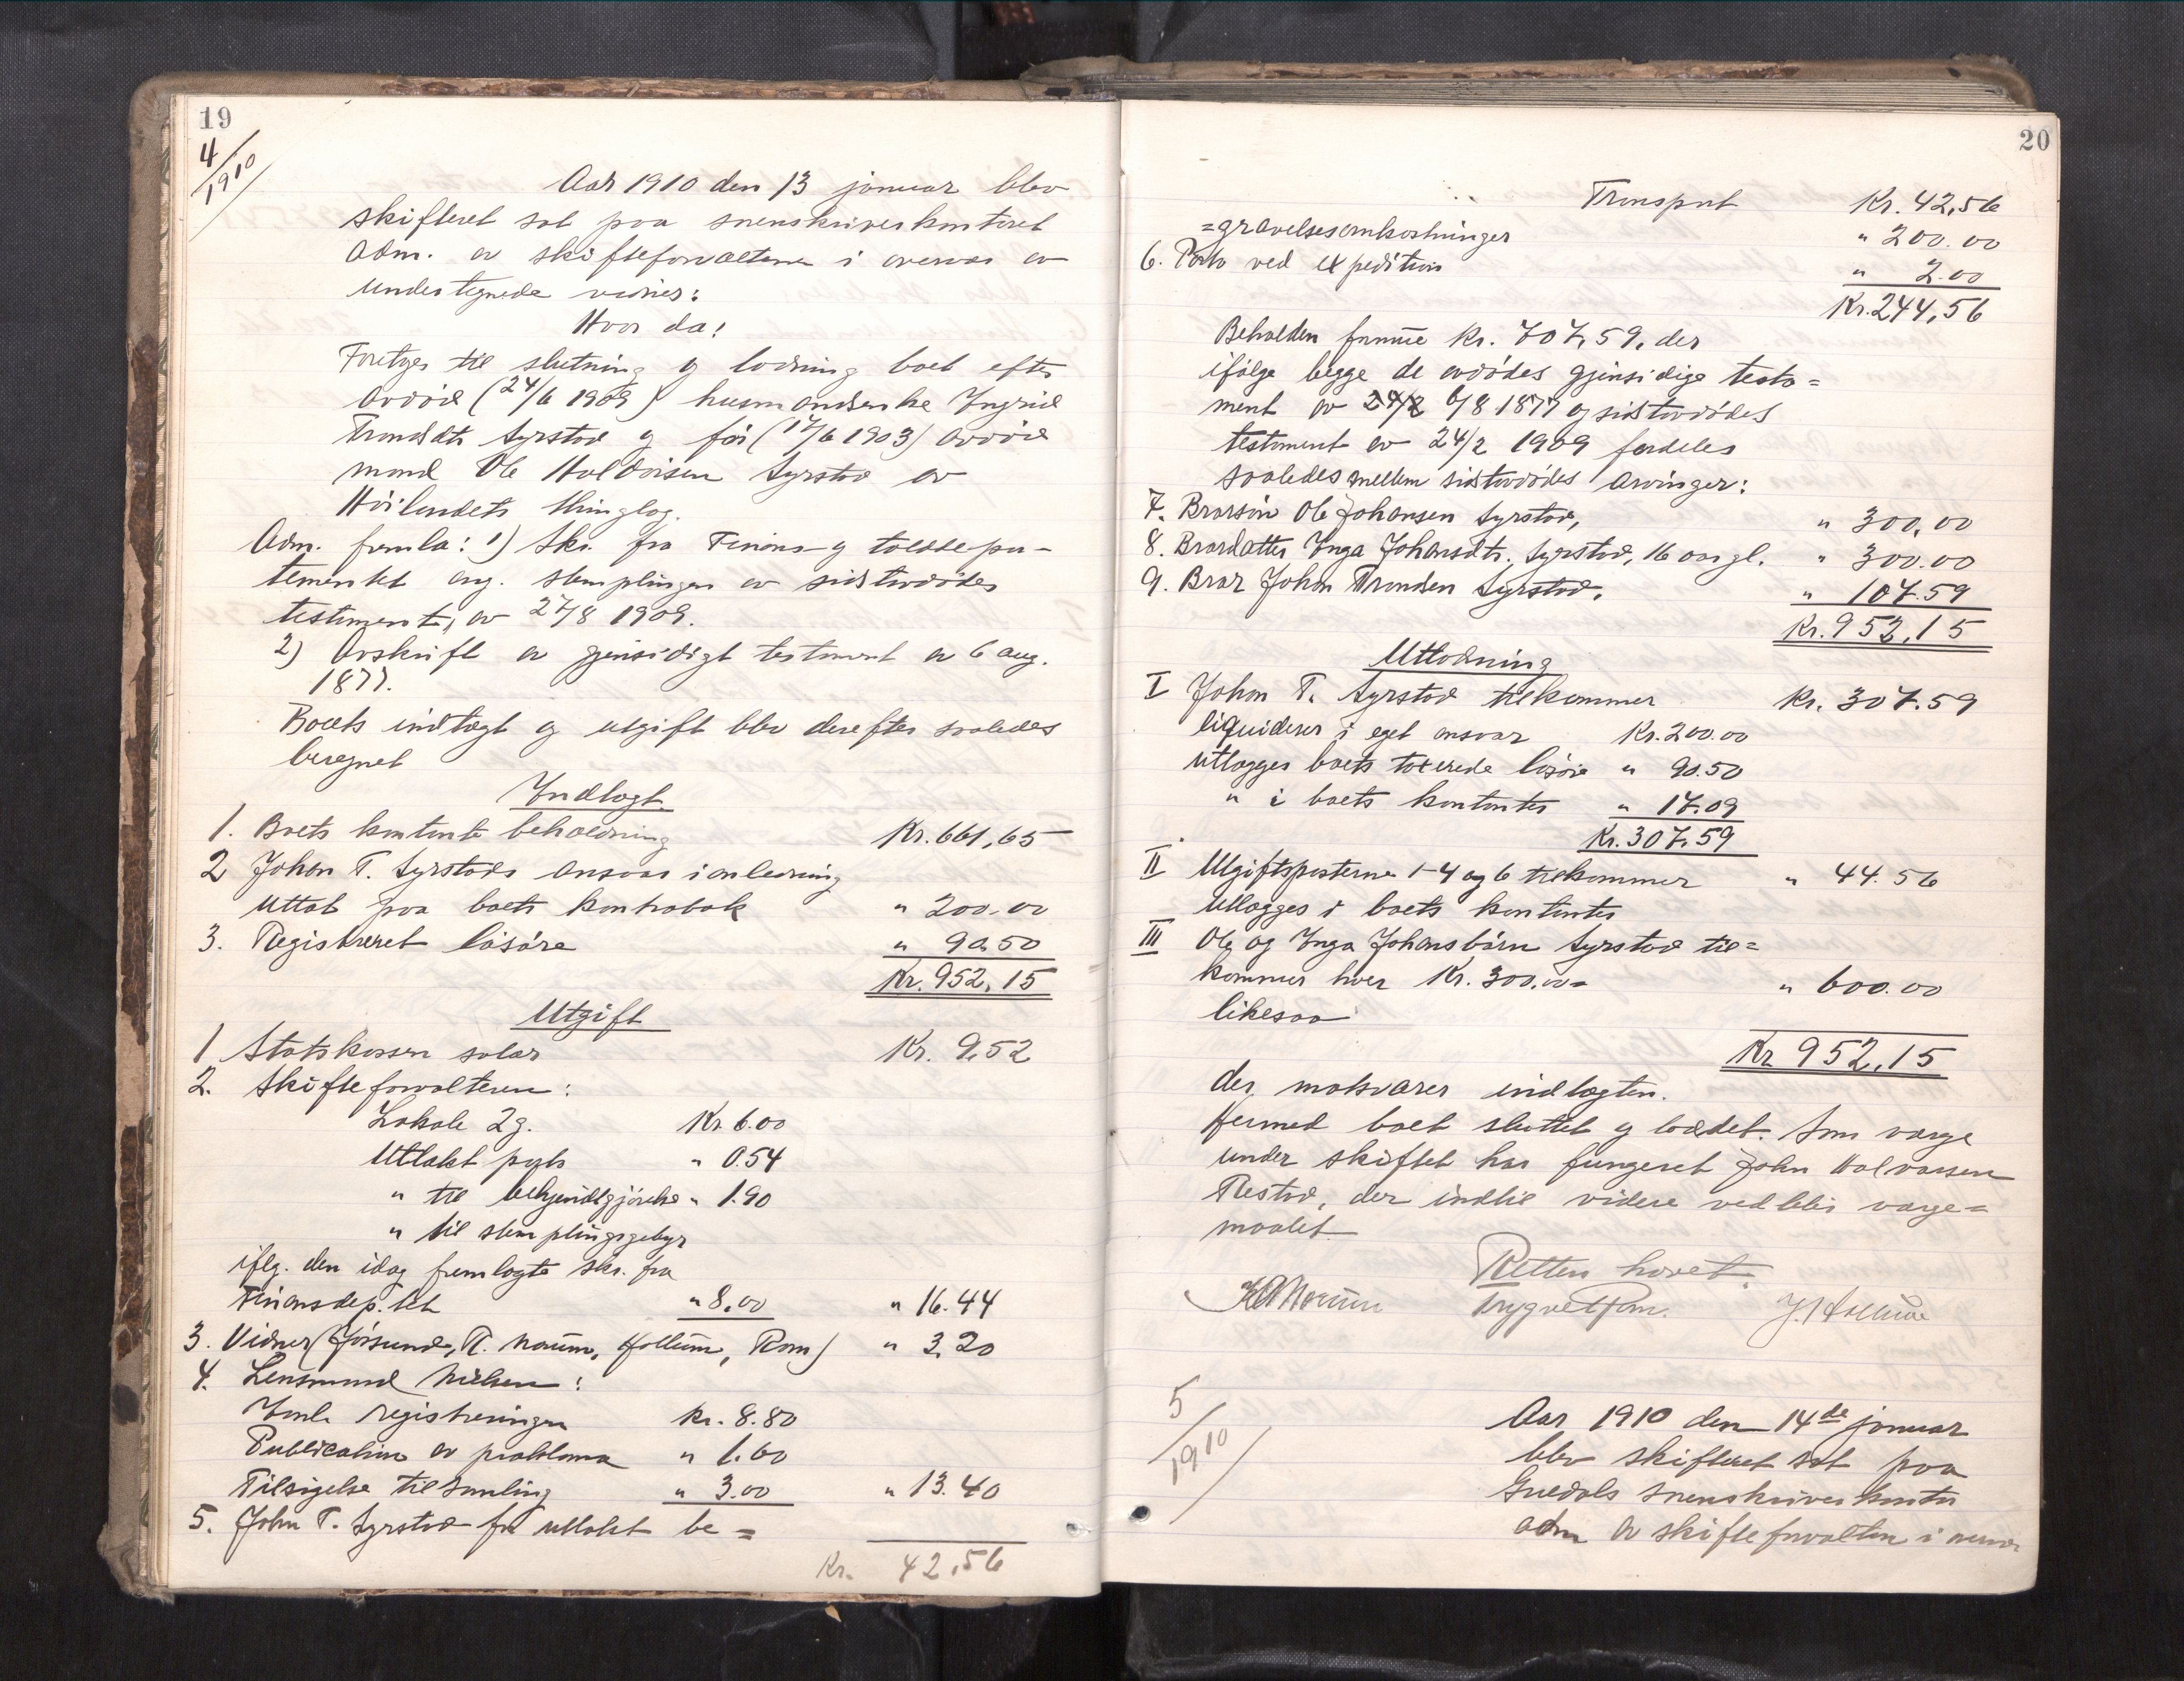 19
4/1910
Aar 1910 den 13 januar blev
skifteret sat paa sorenskriverkontoret
adm. av skifteforvalteren i overvær av
undertegnede vidner:
Hvor da:
Foretges til slutning og lodning boet efter
avdød (24/6 1909) husmandsenke Ingrid
Trondsdtr Syrstad og før (17/6 1903) avdød
mand Ole Haldorsen Syrstad av
Høilandets thinglag.
Adm. fremla: 1) Skr. fra Finans- og tolddepar-
tementet ang. stemplingen av sidstavdødes
testament, av 27/8 1909.
2) Avskrift av gjensidigt testament av 6 aug.
1877.
Boets indtægt og utgift blev derefter saaledes
beregnet
Indtægt
1. Boets kontante beholdning Kr. 661,65
2 Johan T. Syrstads ansvar i anledning
uttat paa boets kontrabok " 200.00
3. Registreret løsøre " 90.50
Kr. 952.15
Utgift
1 Statskassen salær Kr. 9.52
2. Skifteforvalteren:
Lokale 2 g. Kr. 6.00
Utlakt porto " 0.54
" til bekjendtgjørelse " 1.90
" til stemplingsgebyr
iflg. den idag fremlagte skr. fra
Finansdep.tet " 8.00 " 16.44
3. Vidner (Jørsund, R. Moum, Hollum, Ram) " 3.20
4. Lensmand Nielsen:
Forr. registreringen Kr. 8.80
Publication av proklama " 1.60
Tilsigelse til samling " 3.00 " 13.40
5. John T. Syrstad for utlakt be=
Kr. 42.56
20
Transport Kr. 42,56
=gravelsesomkostninger " 200.00
6. Porto ved expedition " 2.00
Kr. 244,56
Beholden formue Kr. 707,59, der
ifølge begge de avdødes gjensidige testa=
ment av 24/2 6/8 1877 og sidstavdødes
testament av 24/2 1909 fordeles
saaledes mellem sidstavdødes arvinger:
7. Brorsøn Ole Johansen Syrstad, " 300,00
8. Brordatter Inga Johansdtr. Syrstad, 16 aar gl. " 300.00
9. Bror Johan Tronsen Syrstad. " 107.59
Kr. 952,15
Utlodning
I Johan T. Syrstad tilkommer Kr. 307.59
liquiderer i eget ansvar Kr. 200.00
utlægges boets taxerede løsøre " 90.50
" i boets kontanter " 17.09
Kr. 307.59
II Utgiftsposterne 1-4 og 6 tilkommer " 44.56
utlægges i boets kontanter
III Ole og Inga Johansbørn Syrstad til=
kommer hver Kr. 300.00= " 600.00
likesaa
Kr 952.15
der motsvarer indtægten.
Hermed boet sluttet og loddet. Som værge
under skiftet har fungeret John Halvorsen
Flestad, der indtil videre vedblir værge=
maalet
Retten hævet.
Trygve Ram. J. Hollum
5/1910
Aar 1910 den 14de januar
blev skifteret sat paa
Guldals sorenskriverkontor
adm av skifteforvalteren i nærvær